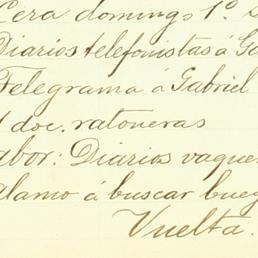 Cera domingo 1º.
Diarios telefonistas á Ga
Telegrama á Gabriel
1 doc. ratoneras
abor: Diarios vaque
alamo á buscar buey
Vuelta.